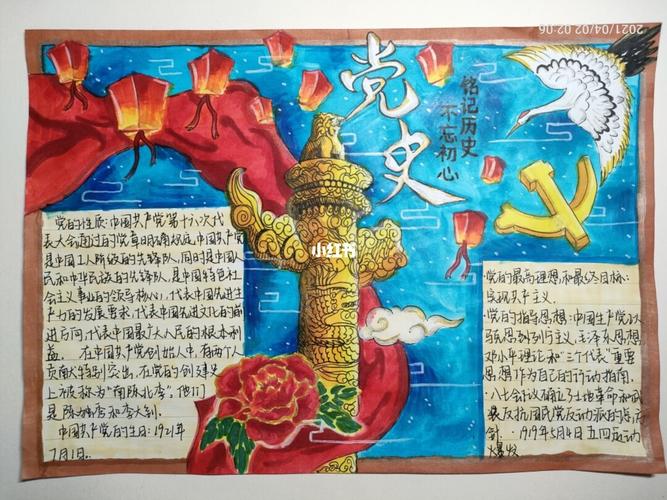 2021/04/02 02:06
党史
铭记历史
不忘初心
小红书
党的性质:中国共产党第十六次代
表大会通过的党章明确规定,中国共产党
是中国工人阶级的先锋队,同时是中国人
民和中华民族的先锋队,是中国特色社
会主义事业的领导核心,代表中国先进生
产力的发展要求,代表中国先进文化的前
进方向,代表中国最广大人民的根本利
益。在中国共产党创始人中,有两个人
贡献特别突出,在党的创建史
上被称为“南陈北李”,他们
是陈独秀和李大钊.
中国共产党的生日:1921年
7月1日.
党的最高理想和最终目标:
实现共产主义.
党的指导思想:中国共产党以
马克思列宁主义,毛泽东思想,
邓小平理论和“三个代表”重要
思想作为自己的行动指南.
八七会议确定了土地革命和武
装反抗国民党反动派的总方
针. 1919年5月4日五四运动
爆发